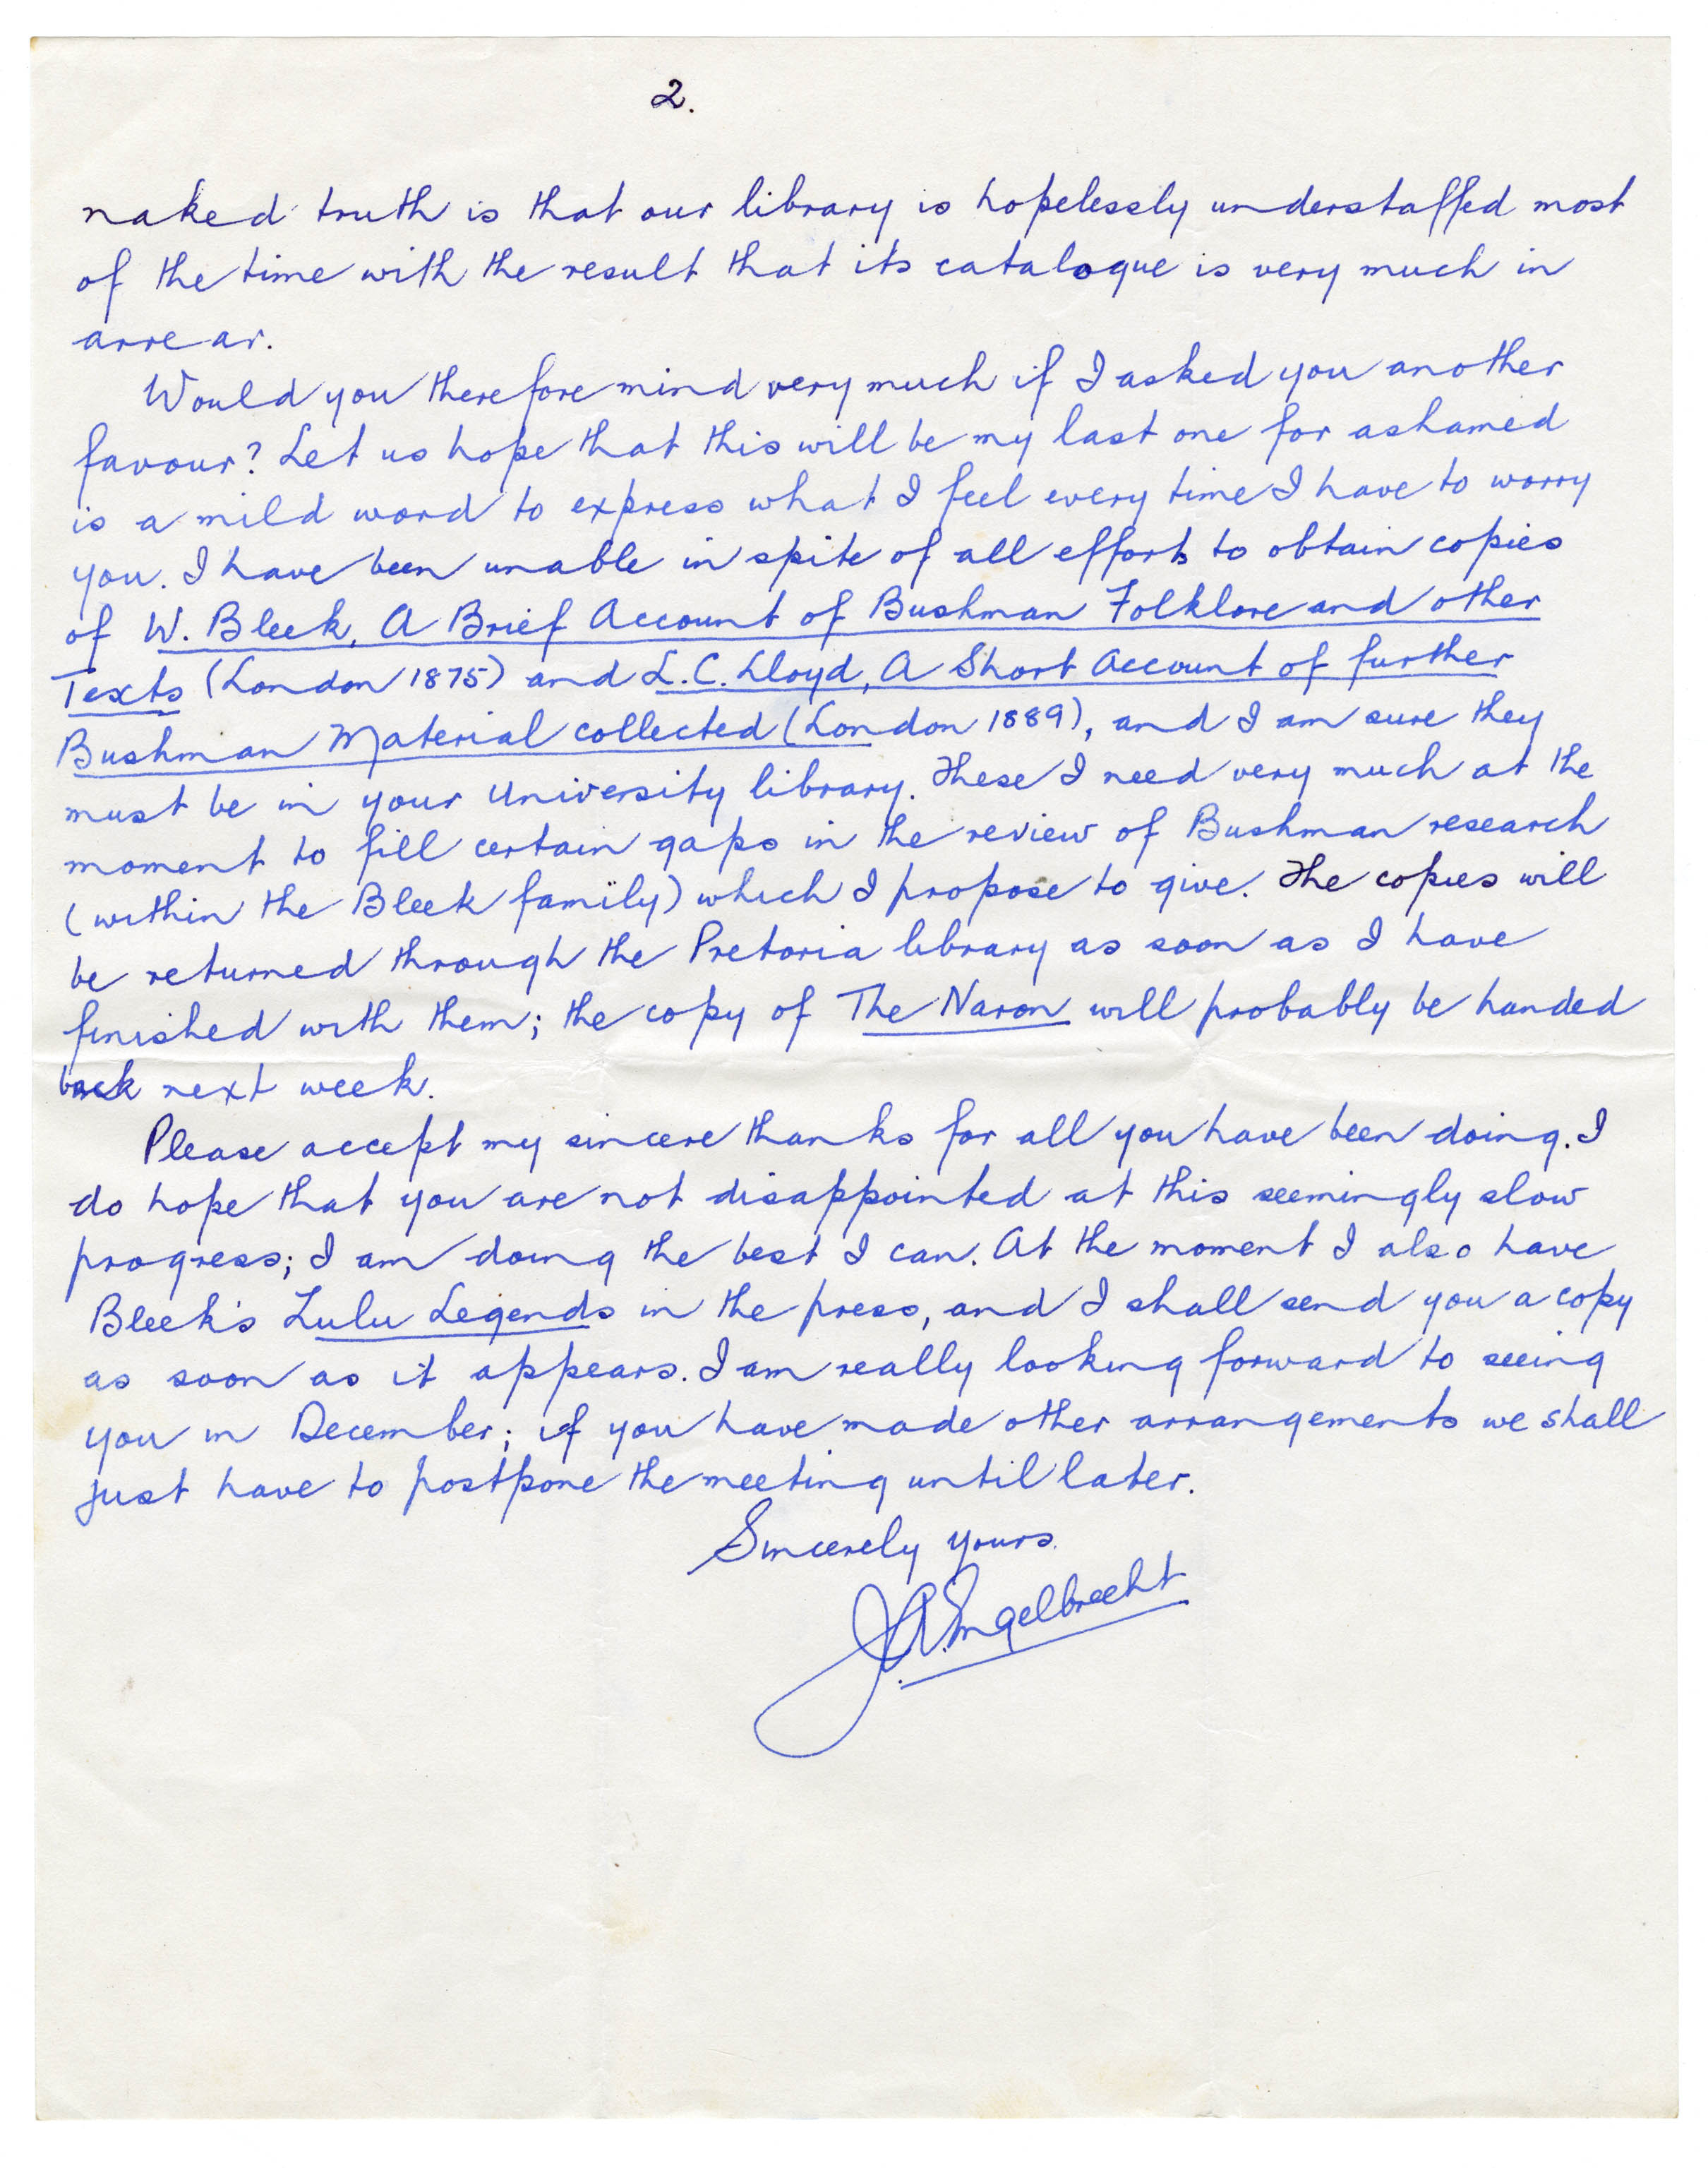 2.
naked truth is that our library is hopelessly understaffed most
of the time with the result that its catalogue is very much in
arrear.
Would you therefore mind very much if I asked you another
favour? Let us hope that this will be my last one for ashamed
is a mild word to express what I feel every time I have to worry
you. I have been unable in spite of all efforts to obtain copies
of W. Bleek, A Brief Account of Bushman Folklore and other
Texts (London 1875) and L.C. Lloyd, A Short Account of further
Bushman Material collected (London 1889), and I am sure they
must be in your University library. These I need very much at the
moment to fill certain gaps in the review of Bushman research
(within the Bleek family) which I propose to give. The copies will
be returned through the Pretoria library as soon as I have
finished with them; the copy of The Naron will probably be handed
back next week.
Please accept my sincere thanks for all you have been doing. I
do hope that you are not disappointed at this seemingly slow
progress; I am doing the best I can. At the moment I also have
Bleek's Zulu Legends in the press, and I shall send you a copy
as soon as it appears. I am really looking forward to seeing
you in December; if you have made other arrangements we shall
just have to postpone the meeting until later.
Sincerely yours.
J.A. Engelbrecht